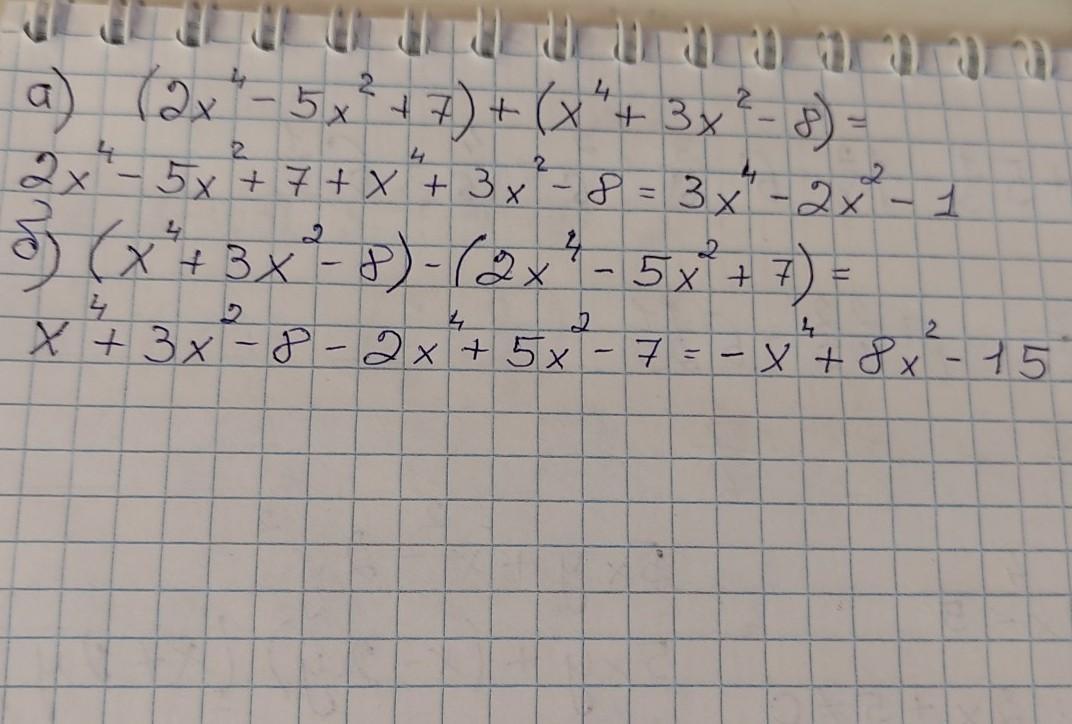 а) (2x⁴ - 5x² + 7) + (x⁴ + 3x² - 8) =
2x⁴ - 5x² + 7 + x⁴ + 3x² - 8 = 3x⁴ - 2x² - 1
б) (x⁴ + 3x² - 8) - (2x⁴ - 5x² + 7) =
x⁴ + 3x² - 8 - 2x⁴ + 5x² - 7 = - x⁴ + 8x² - 15